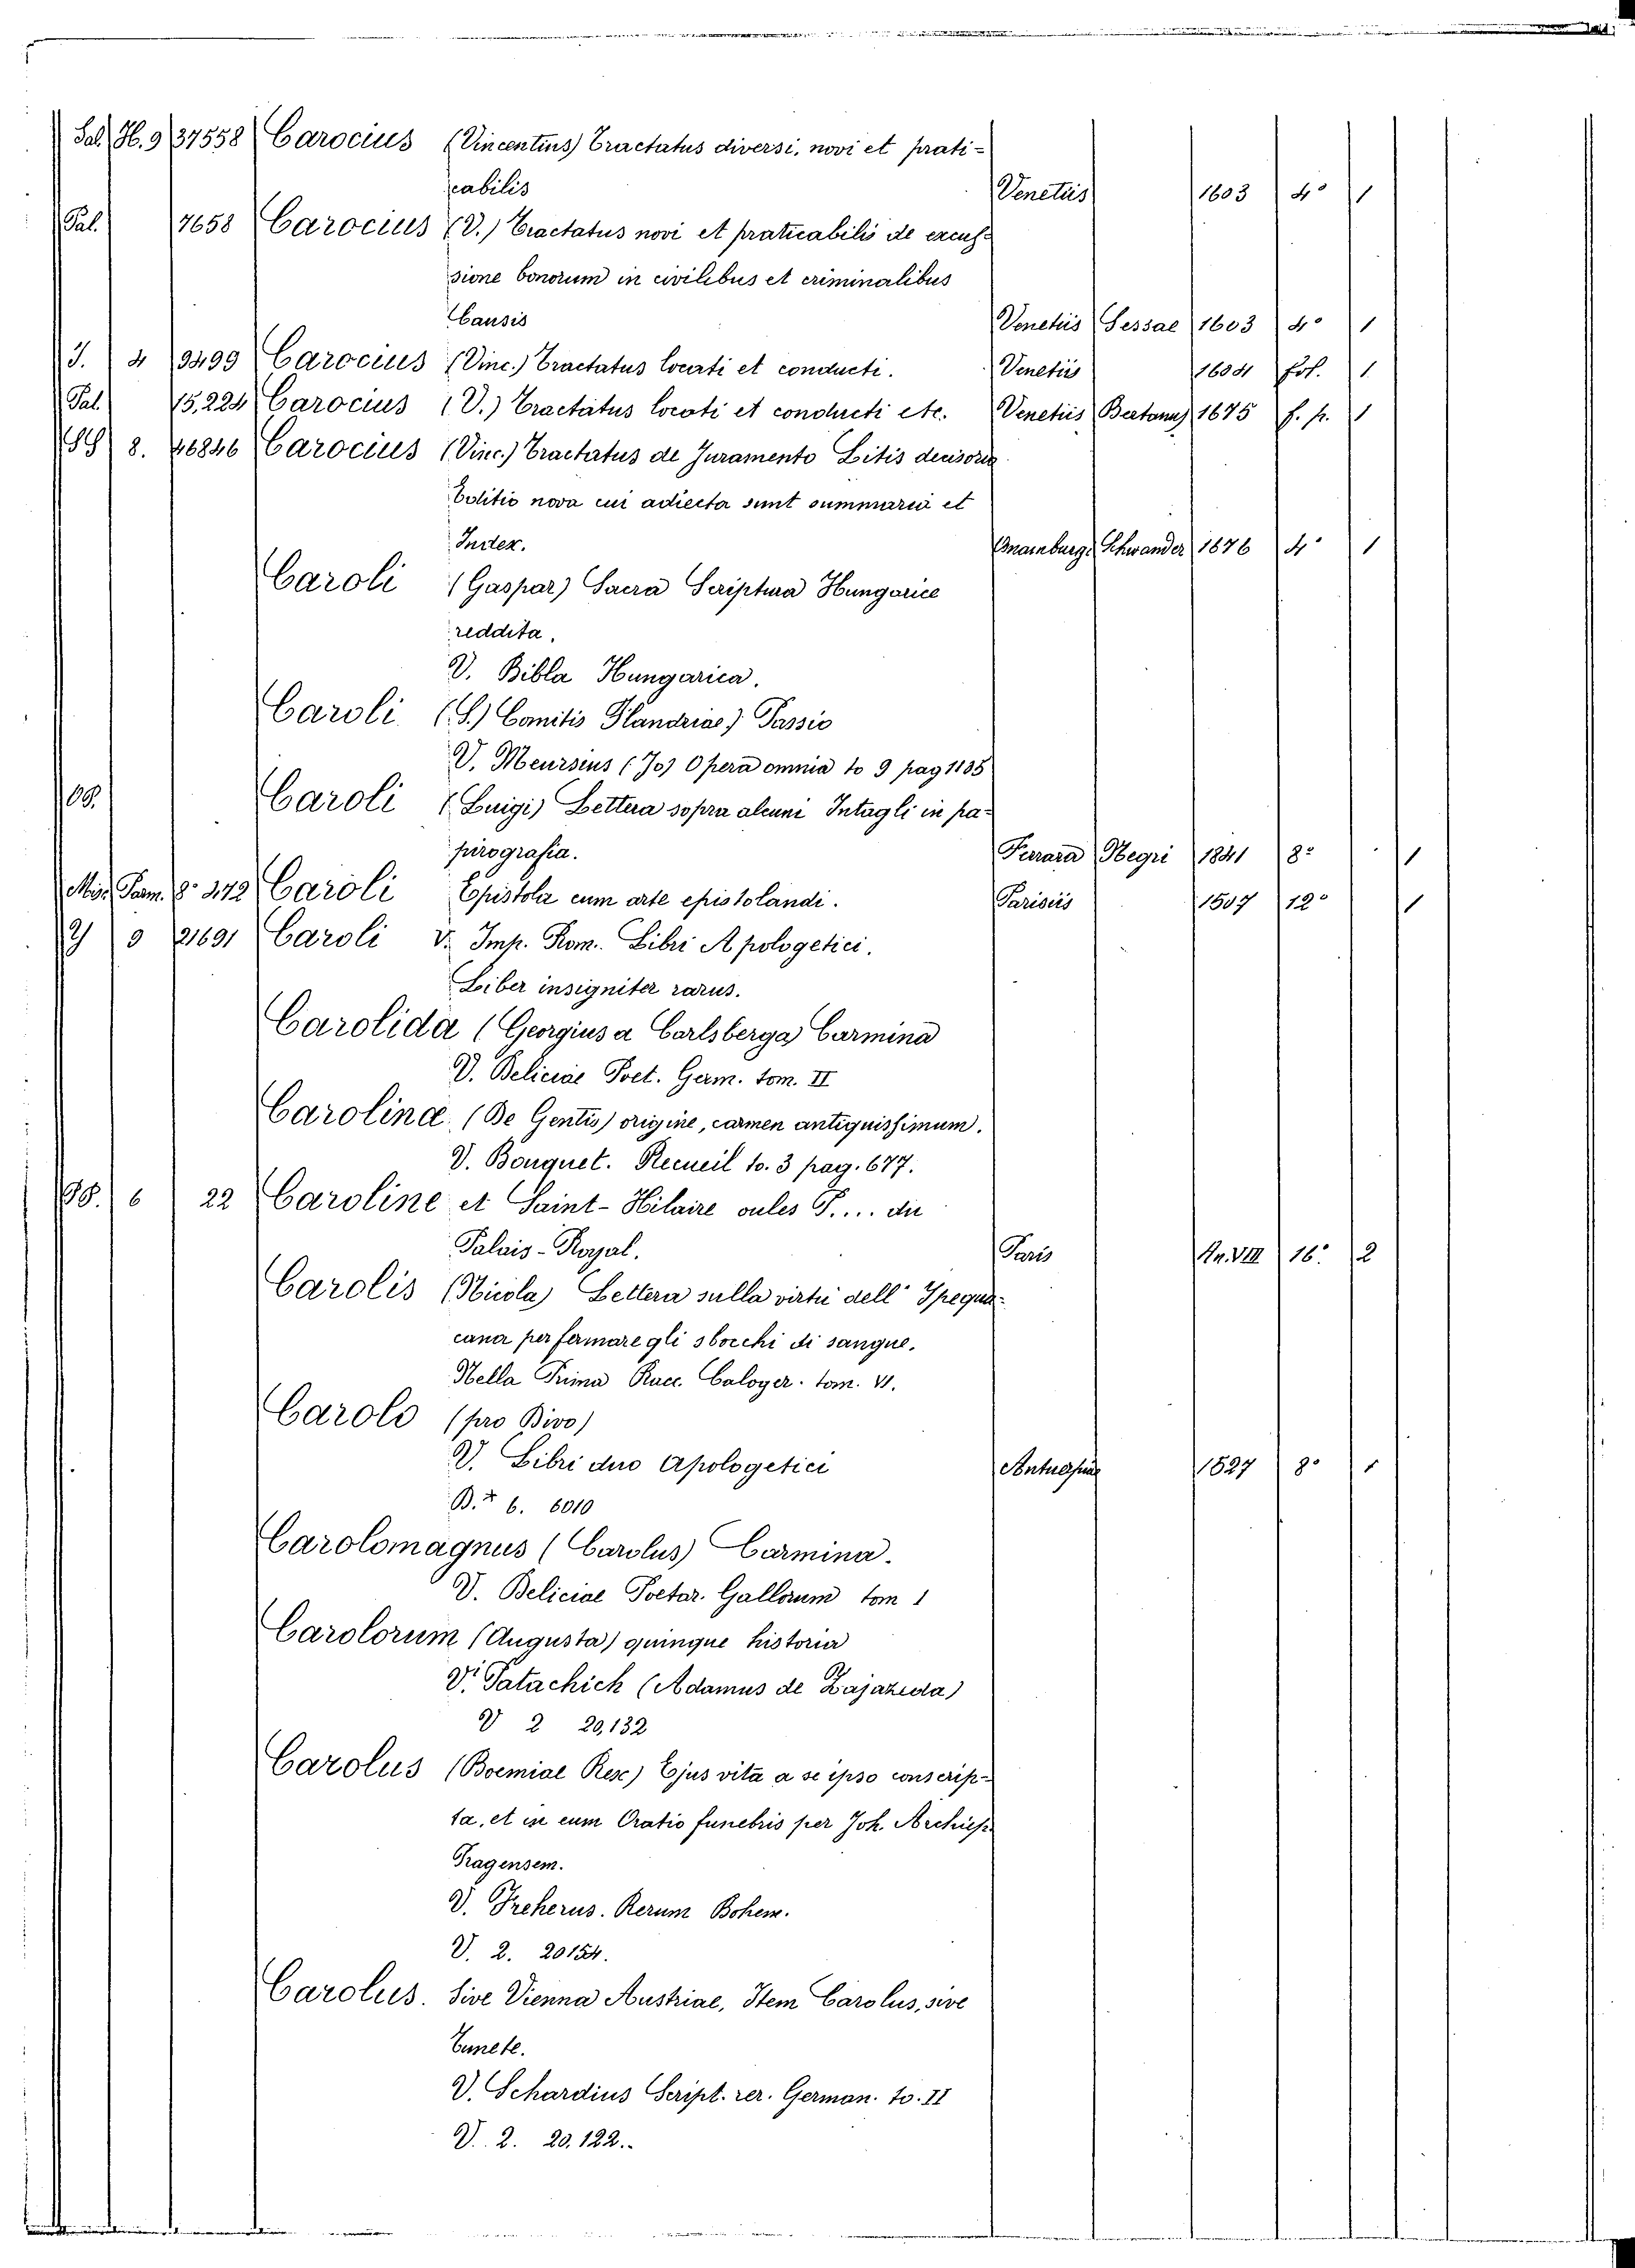 Sal. H. 9 37558 Carocius (Vincentius) Tractatus diversi, novi et prati=
cabilis Venetiis 1603 4º 1
Pal. 7658 Carocius (V.) Tractatus novi et praticabilis de excus=
sione bonorum in civilibus et criminalibus
Causis Venetiis Sessae 1603 4º 1
J. 4 9499 Carocius (Vinc.) Tractatus locati et conducti. Venetiis 1604 fol. 1
Pal. 15,224 Carocius (V.) Tractatus locati et conducti etc. Venetiis Bertanus 1675 f. p. 1
8. 46846 Carocius (Vinc.) Tractatus de Juramento Litis decisorio
Editio nova cui adiecta sunt summaria et
Index. Schwander 1676 4º 1
Caroli (Gaspar) Sacra Scriptura Hungarice
reddita.
V. Bibla Hungarica.
Caroli (S.) Comitis Flandriae) Passio
V. Meursius (Jo) Opera omnia to 9 pag 1135
Caroli (Luigi) Lettera sopra alcuni Intagli in pa-
pirografia. Ferrara Negri 1841 8º 1
Mis. Pam. 8º 342 Caroli Epistola cum arte epistolandi. Parisiis 1507 12º 1
9 21691 Caroli V. Imp. Rom. Libri Apologetici.
Liber insigniter rarus.
Carolida (Georgius a Carlsberga) Carmina
V. Deliciae Poet. Germ. tom. II
Carolina (De Gentis) origine, carmen antiquissimum.
V. Bouquet. Recueil to. 3 pag. 677.
6 22 Caroline et Saint-Hilaire oules P.... du
Palais-Royal. Paris An. VIII 16º 2
Carolis (Nicola) Lettera sulla virtù dell' Ipequa-
cana per fermare gli sbocchi di sangue.
Nella Prima Racc. Caloger. tom. VI.
Carolo (pro Divo)
V. Libri duo Apologetici Antuerpiae 1527 8º 1
B. + 6. 6010
Carolomagnus (Carolus) Carmina.
V. Deliciae Poetar. Gallorum tom 1
Carolorum (Augusta) quinque historia
V. Patachich (Adamus de Zajazeda)
V 2 20,132
Carolus (Boemiae Rex) Ejus vita a se ipso conscrip-
ta, et in eum Oratio funebris per Joh. Archiep.
Pragensem.
V. Freherus. Rerum Bohem.
V. 2. 20154.
Carolus. Sive Vienna Austriae, Item Carolus, sive
Tunete.
V. Schardius Script. rer. German. to. II
V. 2. 20.122.